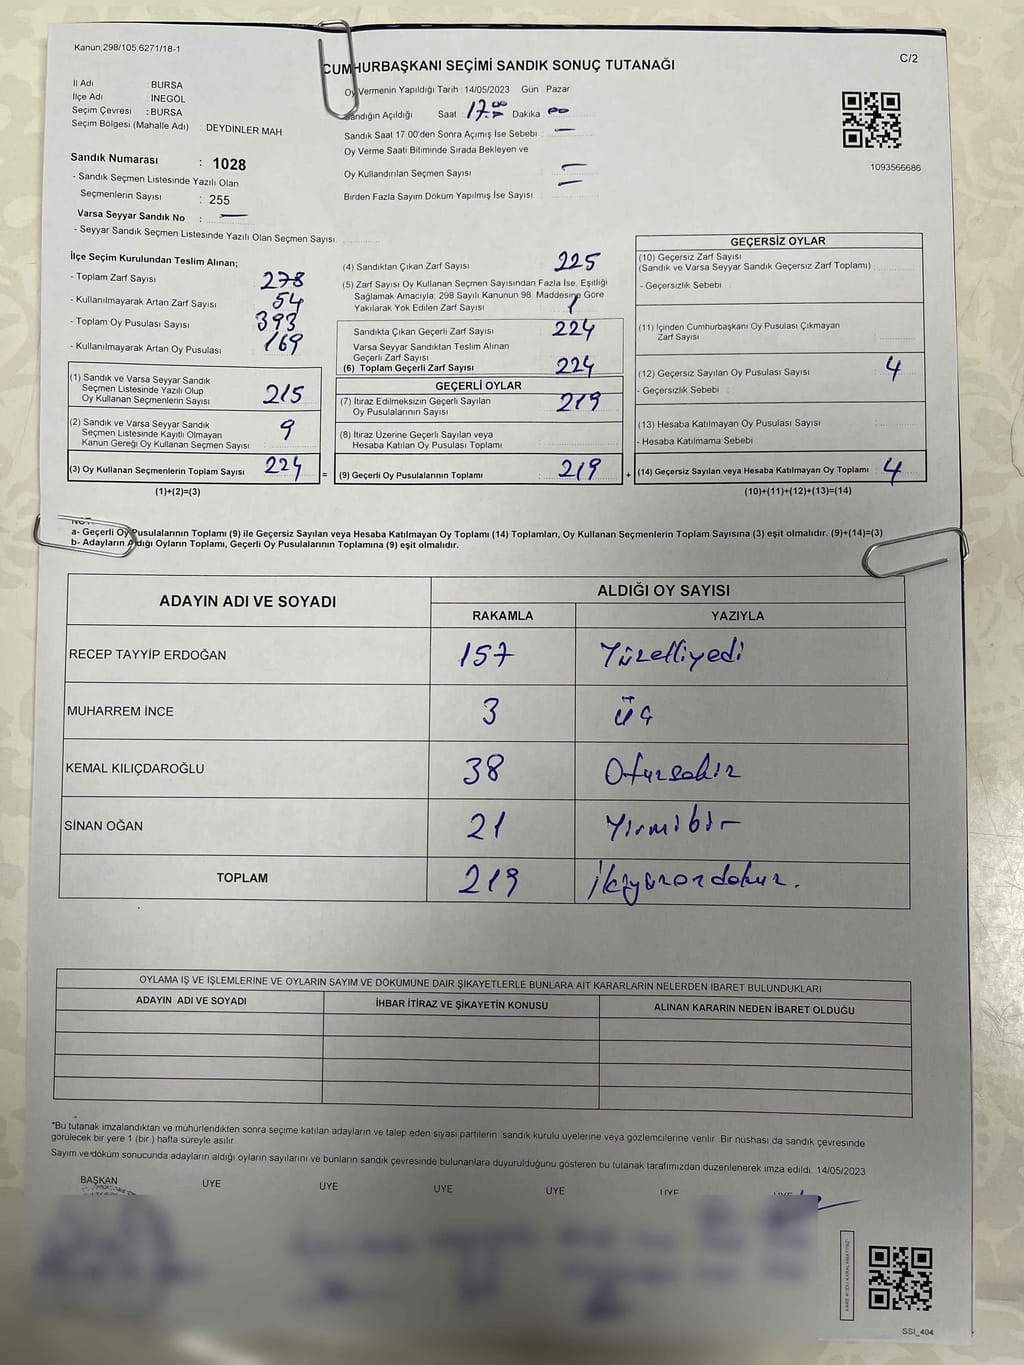 Kanun;298/105,6271/18-1
C/2
CUMHURBAŞKANI SEÇİMİ SANDIK SONUÇ TUTANAĞI
İl Adı : BURSA
İlçe Adı : İNEGÖL
Seçim Çevresi : BURSA
Seçim Bölgesi (Mahalle Adı) : DEYDİNLER MAH
Oy Vermenin Yapıldığı Tarih 14/05/2023 Gün : Pazar
Sandığın Açıldığı Saat : 17:00 Dakika : 00
Sandık Saat 17.00'den Sonra Açımış İse Sebebi : —
Oy Verme Saati Bitiminde Sırada Bekleyen ve
Oy Kullandırılan Seçmen Sayısı —
Birden Fazla Sayım Döküm Yapılmış İse Sayısı —
1093566686
Sandık Numarası : 1028
- Sandık Seçmen Listesinde Yazılı Olan
Seçmenlerin Sayısı : 255
Varsa Seyyar Sandık No : —
- Seyyar Sandık Seçmen Listesinde Yazılı Olan Seçmen Sayısı.
İlçe Seçim Kurulundan Teslim Alınan;
- Toplam Zarf Sayısı 278
- Kullanılmayarak Artan Zarf Sayısı 54
- Toplam Oy Pusulası Sayısı 393
- Kullanılmayarak Artan Oy Pusulası 169
(1) Sandık ve Varsa Seyyar Sandık
Seçmen Listesinde Yazılı Olup
Oy Kullanan Seçmenlerin Sayısı 215
(2) Sandık ve Varsa Seyyar Sandık
Seçmen Listesinde Kayıtlı Olmayan
Kanun Gereği Oy Kullanan Seçmen Sayısı 9
(3) Oy Kullanan Seçmenlerin Toplam Sayısı 224 =
(1)+(2)=(3)
(4) Sandıktan Çıkan Zarf Sayısı 225
(5) Zarf Sayısı Oy Kullanan Seçmen Sayısından Fazla İse, Eşitliği
Sağlamak Amacıyla; 298 Sayılı Kanunun 98. Maddesine Göre
Yakılarak Yok Edilen Zarf Sayısı 1
Sandıkta Çıkan Geçerli Zarf Sayısı 224
Varsa Seyyar Sandıktan Teslim Alınan
Geçerli Zarf Sayısı
(6) Toplam Geçerli Zarf Sayısı 224
GEÇERLİ OYLAR
(7) İtiraz Edilmeksizin Geçerli Sayılan
Oy Pusulalarının Sayısı 219
(8) İtiraz Üzerine Geçerli Sayılan veya
Hesaba Katılan Oy Pusulası Toplamı
(9) Geçerli Oy Pusulalarının Toplamı 219 +
GEÇERSİZ OYLAR
(10) Geçersiz Zarf Sayısı
(Sandık ve Varsa Seyyar Sandık Geçersiz Zarf Toplamı) :
- Geçersizlik Sebebi :
(11) İçinden Cumhurbaşkanı Oy Pusulası Çıkmayan
Zarf Sayısı
(12) Geçersiz Sayılan Oy Pusulası Sayısı 4
- Geçersizlik Sebebi :
(13) Hesaba Katılmayan Oy Pusulası Sayısı
- Hesaba Katılmama Sebebi :
(14) Geçersiz Sayılan veya Hesaba Katılmayan Oy Toplamı : 4
(10)+(11)+(12)+(13)=(14)
a- Geçerli Oy Pusulalarının Toplamı (9) ile Geçersiz Sayılan veya Hesaba Katılmayan Oy Toplamı (14) Toplamları, Oy Kullanan Seçmenlerin Toplam Sayısına (3) eşit olmalıdır. (9)+(14)=(3)
b- Adayların Aldığı Oyların Toplamı, Geçerli Oy Pusulalarının Toplamına (9) eşit olmalıdır.
ADAYIN ADI VE SOYADI
ALDIĞI OY SAYISI
RAKAMLA YAZIYLA
RECEP TAYYİP ERDOĞAN 157 Yüzelliyedi
MUHARREM İNCE 3 üç
KEMAL KILIÇDAROĞLU 38 Otuzsekiz
SİNAN OĞAN 21 Yirmibir
TOPLAM 219 İkiyüzondokuz.
OYLAMA İŞ VE İŞLEMLERİNE VE OYLARIN SAYIM VE DÖKÜMÜNE DAİR ŞİKAYETLERLE BUNLARA AİT KARARLARIN NELERDEN İBARET BULUNDUKLARI
ADAYIN ADI VE SOYADI İHBAR İTİRAZ VE ŞİKAYETİN KONUSU ALINAN KARARIN NEDEN İBARET OLDUĞU
*Bu tutanak imzalandıktan ve mühürlendikten sonra seçime katılan adayların ve talep eden siyasi partilerin sandık kurulu üyelerine veya gözlemcilerine verilir. Bir nüshası da sandık çevresinde
görülecek bir yere 1 (bir ) hafta süreyle asılır.
Sayım ve döküm sonucunda adayların aldığı oyların sayılarını ve bunların sandık çevresinde bulunanlara duyurulduğunu gösteren bu tutanak tarafımızdan düzenlenerek imza edildi. 14/05/2023
BAŞKAN ÜYE ÜYE ÜYE ÜYE ÜYE ÜYE
SSI_404